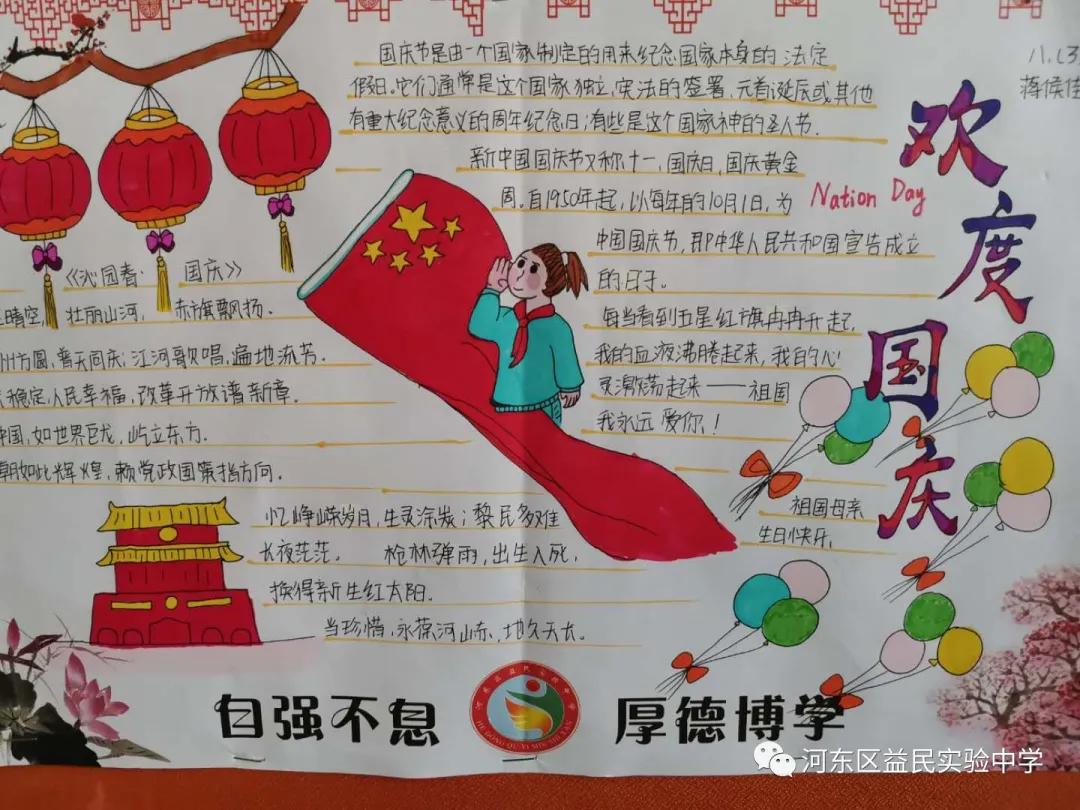 国庆节是由一个国家制定的用来纪念国家本身的法定
假日。它们通常是这个国家独立、宪法的签署、元首诞辰或其他
有重大纪念意义的周年纪念日；有些是这个国家神的圣人节。
新中国国庆节又称十一、国庆日、国庆黄金
周。自1950年起，以每年的10月1日，为
中国国庆节，即中华人民共和国宣告成立
的日子。
Nation Day
每当看到五星红旗冉冉升起，
我的血液沸腾起来，我的心
灵激荡起来——祖国
我永远爱你！
祖国母亲
生日快乐，
欢度国庆
八.(3
蒋侯佳
《沁园春·国庆》
晴空，壮丽山河，赤旗飘扬。
州方圆，普天同庆；江河歌唱，遍地流芳。
稳定，人民幸福，改革开放谱新章。
中国，如世界巨龙，屹立东方。
朝如此辉煌，赖党政国策指方向。
忆峥嵘岁月，生灵涂炭；黎民多难
长夜茫茫。 枪林弹雨，出生入死，
换得新生红太阳。
当珍惜，永葆河山赤，地久天长。
自强不息 厚德博学
河东区益民实验中学